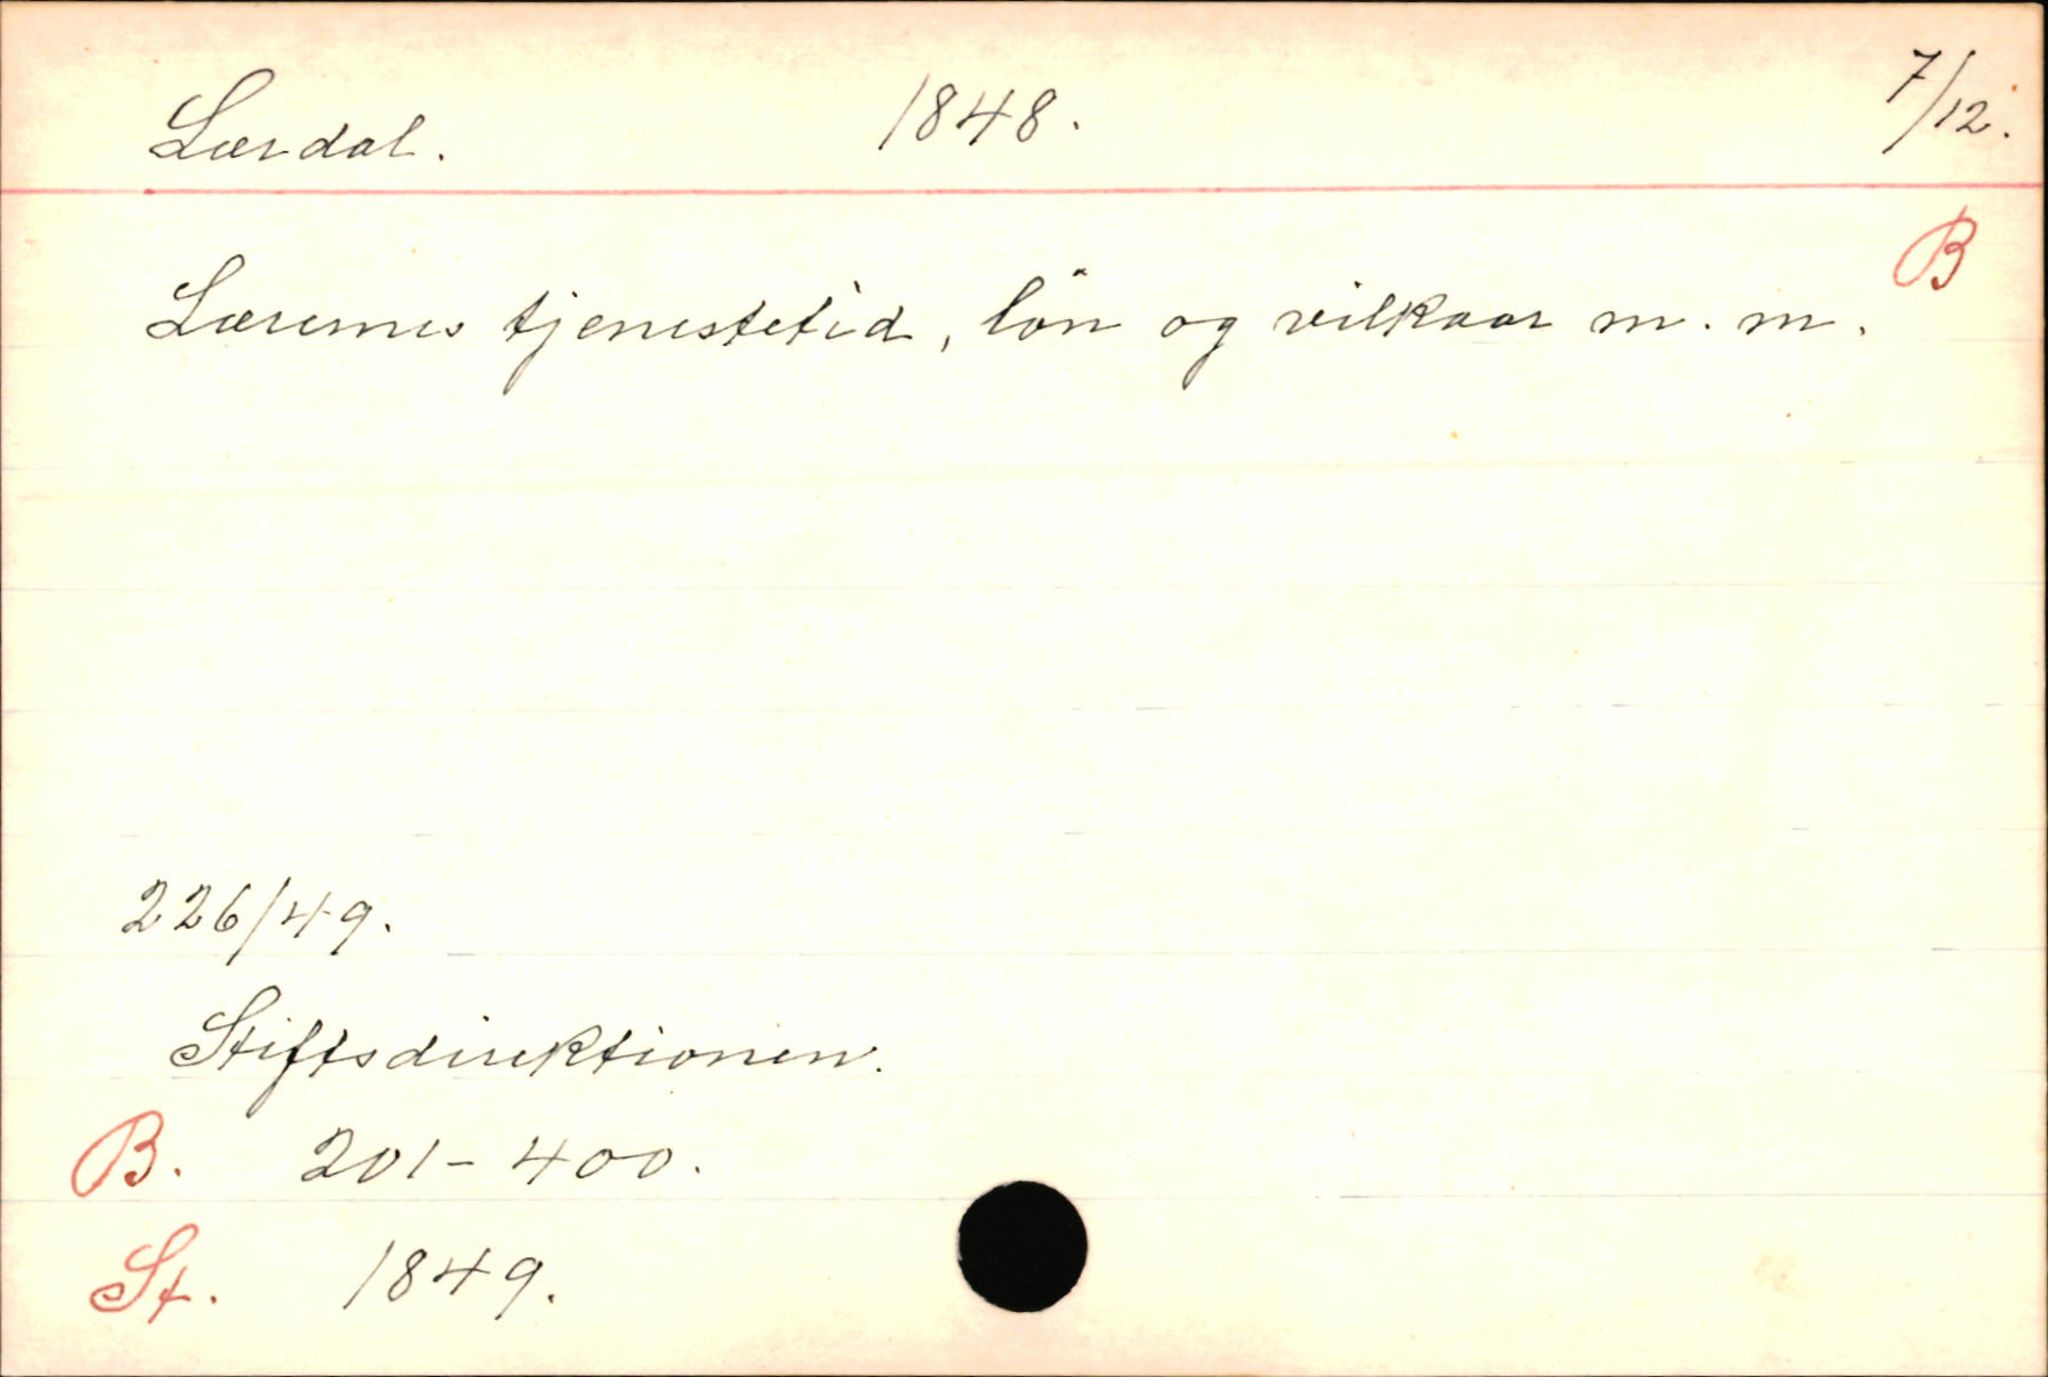 Lærdal. 1848. 7/12.
B
Lærernes tjenestetid, lön og vilkaar m. m.
226/49.
Stiftsdirektionen.
B. 201-400.
St. 1849.